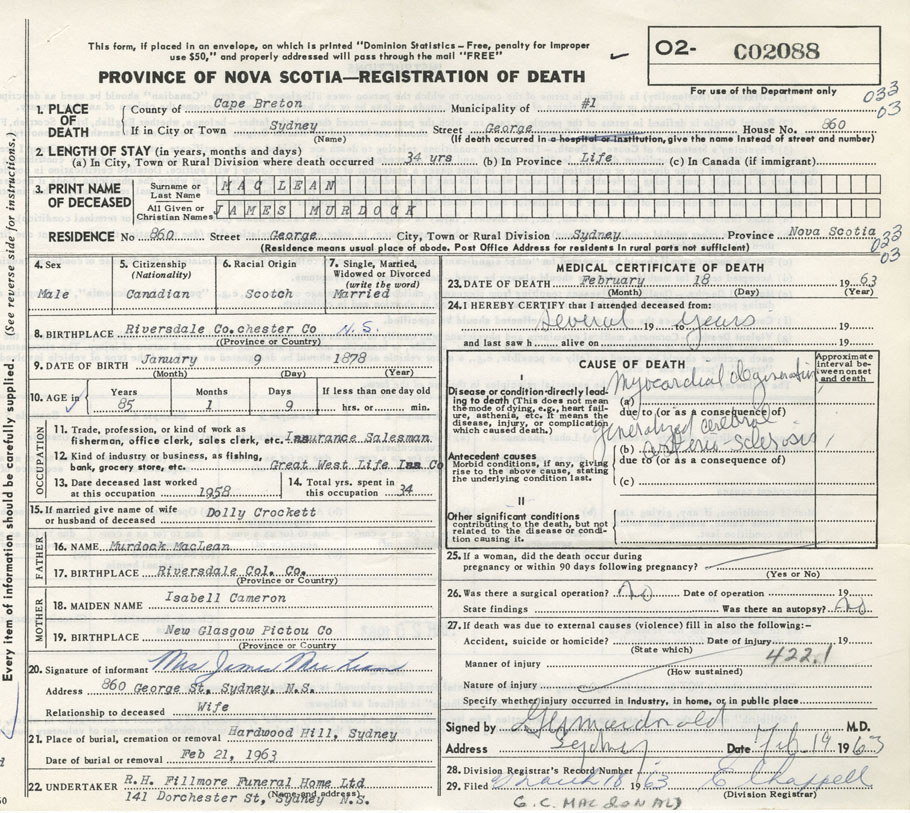 This form, if placed in an envelope, on which is printed "Dominion Statistics – Free, penalty for improper
use $50," and properly addressed will pass through the mail "FREE"
PROVINCE OF NOVA SCOTIA—REGISTRATION OF DEATH
O2- C02088
For use of the Department only
033
03
1. PLACE OF DEATH
County of Cape Breton Municipality of #1
If in City or Town Sydney Street George House No. 860
(Name) (If death occurred in a hospital or institution, give the name instead of street and number)
2. LENGTH OF STAY (in years, months and days)
(a) In City, Town or Rural Division where death occurred 34 yrs (b) In Province Life (c) In Canada (if immigrant)
3. PRINT NAME OF DECEASED
Surname or Last Name MACLEAN
All Given or Christian Names JAMES MURDOCK
RESIDENCE No 860 Street George City, Town or Rural Division Sydney Province Nova Scotia
(Residence means usual place of abode. Post Office Address for residents in rural parts not sufficient)
033
03
4. Sex Male
5. Citizenship (Nationality) Canadian
6. Racial Origin Scotch
7. Single, Married, Widowed or Divorced (write the word) Married
8. BIRTHPLACE Riversdale Co.chester Co N.S.
(Province or Country)
9. DATE OF BIRTH January 9 1878
(Month) (Day) (Year)
10. AGE in Years 85 Months 1 Days 9 If less than one day old hrs. or min.
OCCUPATION
11. Trade, profession, or kind of work as
fisherman, office clerk, sales clerk, etc. Insurance Salesman
12. Kind of industry or business, as fishing,
bank, grocery store, etc. Great West Life Ins Co
13. Date deceased last worked at this occupation 1958
14. Total yrs. spent in this occupation 34
15. If married give name of wife or husband of deceased Dolly Crockett
FATHER
16. NAME Murdock MacLean
17. BIRTHPLACE Riversdale Col. Co.
(Province or Country)
MOTHER
18. MAIDEN NAME Isabell Cameron
19. BIRTHPLACE New Glasgow Pictou Co
(Province or Country)
20. Signature of informant Mrs James MacLean
Address 860 George St, Sydney, N.S.
Relationship to deceased Wife
21. Place of burial, cremation or removal Hardwood Hill, Sydney
Date of burial or removal Feb 21, 1963
22. UNDERTAKER R.H. Fillmore Funeral Home Ltd
(Name and address)
141 Dorchester St, Sydney N.S.
MEDICAL CERTIFICATE OF DEATH
23. DATE OF DEATH February 18 1963
(Month) (Day) (Year)
24. I HEREBY CERTIFY that I attended deceased from:
Several 19 to years 19
and last saw h alive on 19
CAUSE OF DEATH
Approximate interval between onset and death
I
Disease or condition directly leading to death (This does not mean the mode of dying, e.g., heart failure, asthenia, etc. It means the disease, injury, or complication which caused death.)
(a) Myocardial degeneration
due to (or as a consequence of)
generalized cerebral
(b) arterio sclerosis
due to (or as a consequence of)
(c)
Antecedent causes
Morbid conditions, if any, giving rise to the above cause, stating the underlying condition last.
II
Other significant conditions
contributing to the death, but not related to the disease or condition causing it.
25. If a woman, did the death occur during
pregnancy or within 90 days following pregnancy?
(Yes or No)
26. Was there a surgical operation? No Date of operation 19
State findings Was there an autopsy? No
27. If death was due to external causes (violence) fill in also the following:–
Accident, suicide or homicide? Date of injury 19
(State which)
422.1
Manner of injury
(How sustained)
Nature of injury
Specify whether injury occurred in industry, in home, or in public place
Signed by M.D.
Address Sydney Date Feb 19 1963
28. Division Registrar's Record Number
29. Filed March 8 1963 E Chappell
(Division Registrar)
G.C. MACDONALD
Every item of information should be carefully supplied. (See reverse side for instructions.)